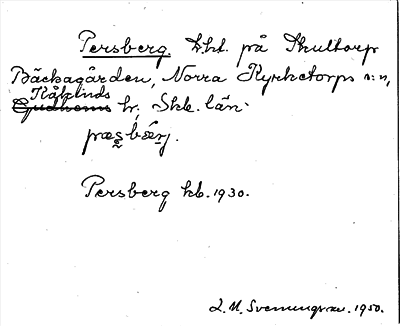 Persberg, t.ht. på Skultorp
Bäckagården, Norra Kyrketorps s:n,
Kåkinds
Gudhems hr, Skb. län.
pæs̱bǽṟj.
Persberg kb. 1930.
L. M. Svenungsson. 1950.